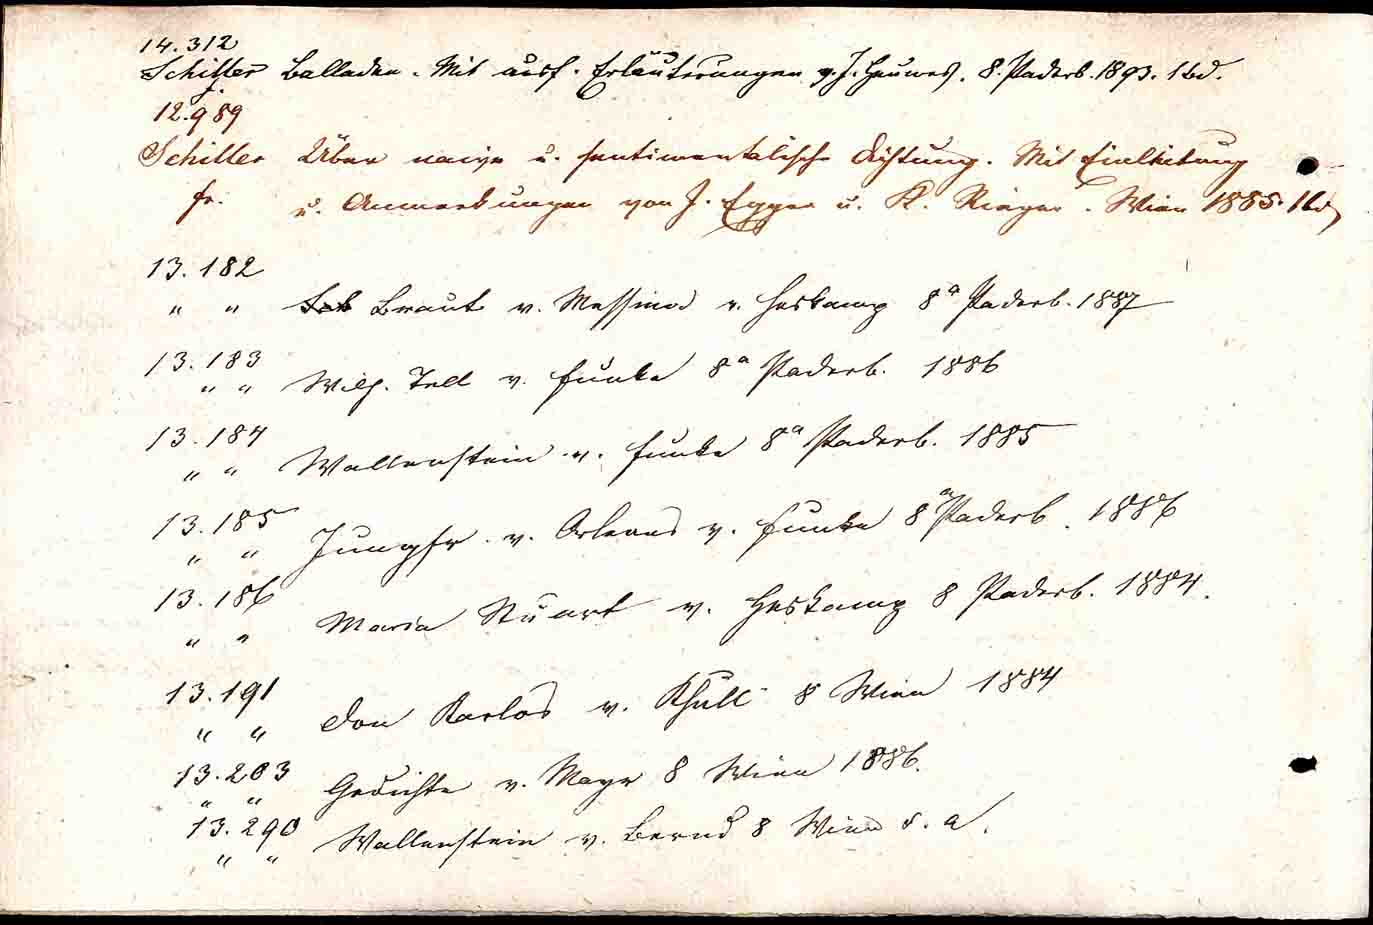 14.312
Schiller Balladen. Mit ausf. Erläuterungen v. J. Heuwes. 8. Paderb. 1893. 1 Bd.
12.989
Schiller Über naive u. sentimentalische Dichtung. Mit Einleitung
fr. u. Anmerkungen von J. Egger u. K. Rieger. Wien 1885. 1 Bd
13.182
" " Braut v. Messina v. Heskamp 8° Paderb. 1887
13.183
" " Wilh. Tell v. Funke 8° Paderb. 1886
13.184
" " Wallenstein v. Funke 8° Paderb. 1885
13.185
" " Jungfr. v. Orleans v. Funke 8° Paderb. 1886
13.186
" " Maria Stuart v. Heskamp 8 Paderb. 1884.
13.191
" " Don Karlos v. Khull 8 Wien 1884
13.203
" " Gedichte v. Mayr 8 Wien 1886.
13.290
" " Wallenstein v. Bernd 8 Wien s. a.